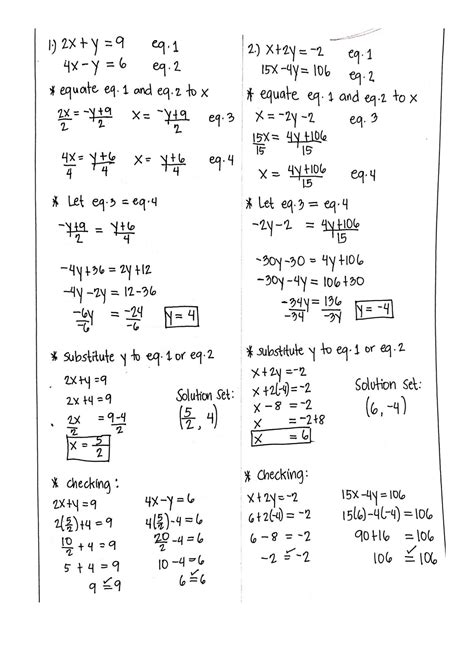 1.) 2x + y = 9 eq. 1
4x - y = 6 eq. 2
* equate eq. 1 and eq. 2 to x
2x/2 = -y+9/2 x = -y+9/2 eq. 3
4x/4 = y+6/4 x = y+6/4 eq. 4
* Let eq. 3 = eq. 4
-y+9/2 = y+6/4
-4y+36 = 2y+12
-4y-2y = 12-36
-6y/-6 = -24/-6 y = 4
* substitute y to eq. 1 or eq. 2
2x+y = 9
2x+4 = 9
2x/2 = 9-4/2
x = 5/2
Solution Set:
(5/2, 4)
* checking:
2x+y = 9
2(5/2)+4 = 9
10/2 + 4 = 9
5 + 4 = 9
9 ≚ 9
4x-y = 6
4(5/2)-4 = 6
20/2 -4 = 6
10-4 = 6
6 ≚ 6
2.) x+2y = -2 eq. 1
15x-4y = 106 eq. 2
* equate eq. 1 and eq. 2 to x
x = -2y-2 eq. 3
15x/15 = 4y+106/15
x = 4y+106/15 eq. 4
* Let eq. 3 = eq. 4
-2y-2 = 4y+106/15
-30y-30 = 4y+106
-30y-4y = 106+30
-34y/-34 = 136/-34 y = -4
* substitute y to eq. 1 or eq. 2
x+2y = -2
x+2(-4) = -2
x - 8 = -2
x = -2+8
x = 6
Solution Set:
(6, -4)
* Checking:
x+2y = -2
6+2(-4) = -2
6 - 8 = -2
-2 ≚ -2
15x-4y = 106
15(6)-4(-4) = 106
90+16 = 106
106 ≚ 106